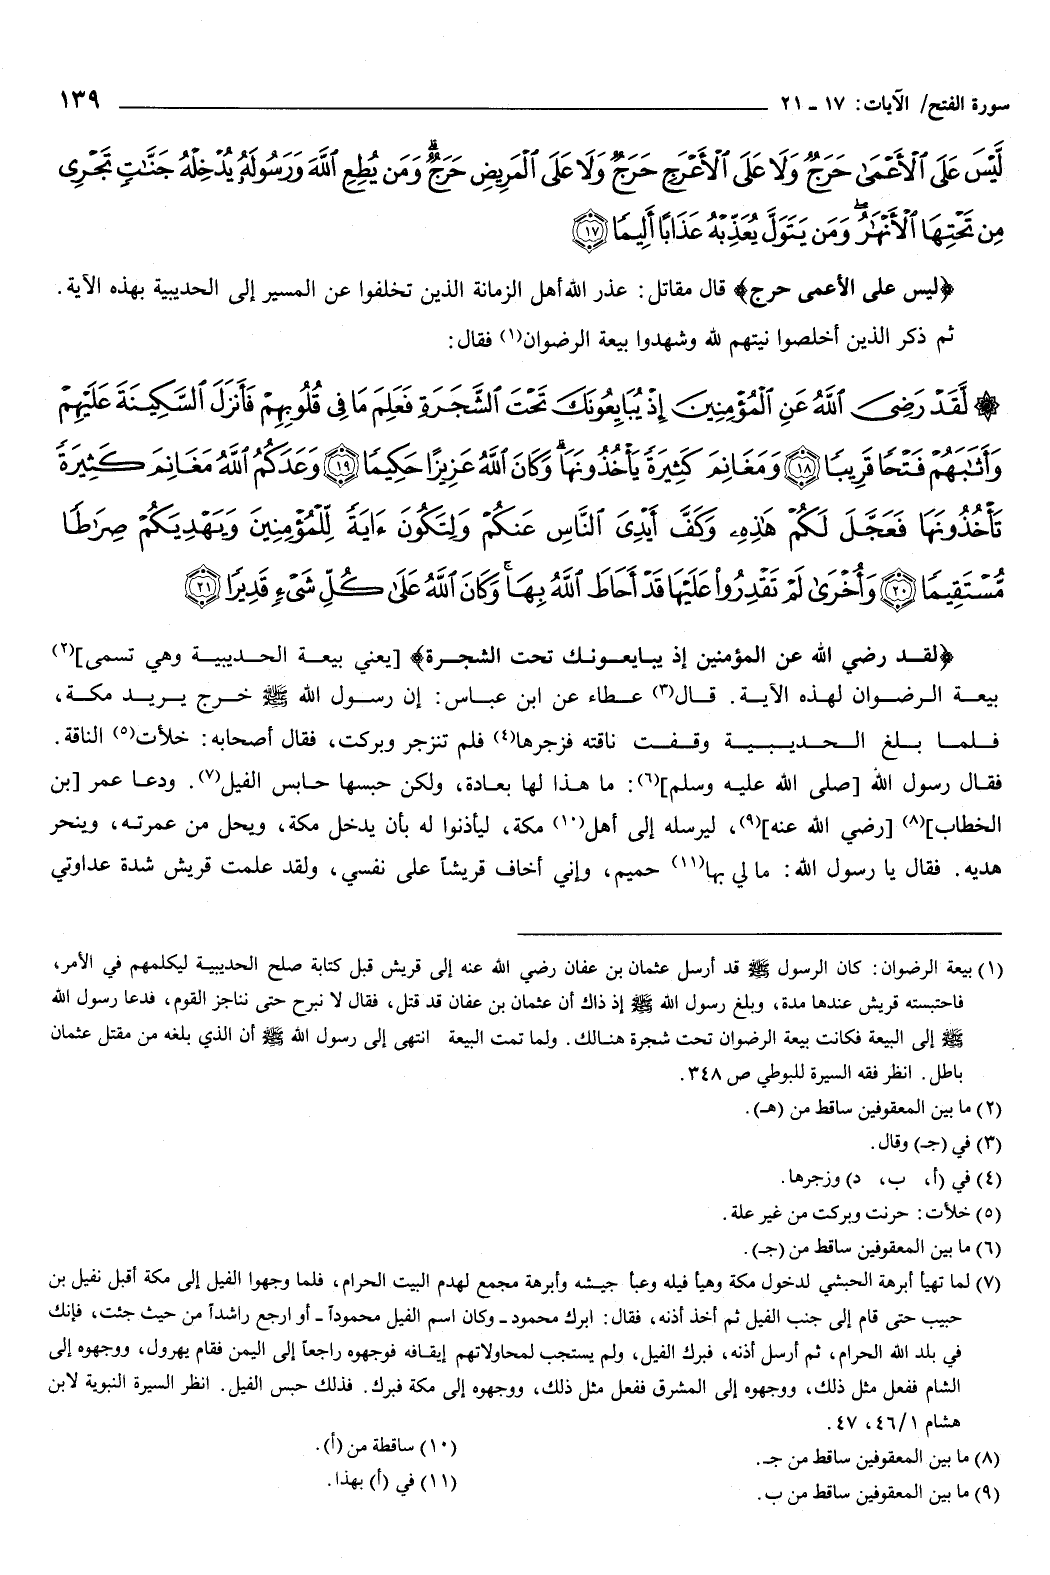 سورة الفتح/ الآيات: ١٧ ـ ٢١ ١٣٩
لَّيْسَ عَلَى ٱلْأَعْمَىٰ حَرَجٌ وَلَا عَلَى ٱلْأَعْرَجِ حَرَجٌ وَلَا عَلَى ٱلْمَرِيضِ حَرَجٌ ۗ وَمَن يُطِعِ ٱللَّهَ وَرَسُولَهُۥ يُدْخِلْهُ جَنَّٰتٍ تَجْرِى
مِن تَحْتِهَا ٱلْأَنْهَٰرُ ۖ وَمَن يَتَوَلَّ يُعَذِّبْهُ عَذَابًا أَلِيمًا ١٧
﴿ليس على الأعمى حرج﴾ قال مقاتل: عذر الله أهل الزمانة الذين تخلفوا عن المسير إلى الحديبية بهذه الآية.
ثم ذكر الذين أخلصوا نيتهم لله وشهدوا بيعة الرضوان(١) فقال:
۞ لَّقَدْ رَضِىَ ٱللَّهُ عَنِ ٱلْمُؤْمِنِينَ إِذْ يُبَايِعُونَكَ تَحْتَ ٱلشَّجَرَةِ فَعَلِمَ مَا فِى قُلُوبِهِمْ فَأَنزَلَ ٱلسَّكِينَةَ عَلَيْهِمْ
وَأَثَٰبَهُمْ فَتْحًا قَرِيبًا ١٨ وَمَغَانِمَ كَثِيرَةً يَأْخُذُونَهَا ۗ وَكَانَ ٱللَّهُ عَزِيزًا حَكِيمًا ١٩ وَعَدَكُمُ ٱللَّهُ مَغَانِمَ كَثِيرَةً
تَأْخُذُونَهَا فَعَجَّلَ لَكُمْ هَٰذِهِۦ وَكَفَّ أَيْدِىَ ٱلنَّاسِ عَنكُمْ وَلِتَكُونَ ءَايَةً لِّلْمُؤْمِنِينَ وَيَهْدِيَكُمْ صِرَٰطًا
مُّسْتَقِيمًا ٢٠ وَأُخْرَىٰ لَمْ تَقْدِرُوا۟ عَلَيْهَا قَدْ أَحَاطَ ٱللَّهُ بِهَا ۚ وَكَانَ ٱللَّهُ عَلَىٰ كُلِّ شَىْءٍ قَدِيرًا ٢١
﴿لقد رضي الله عن المؤمنين إذ يبايعونك تحت الشجرة﴾ [يعني بيعة الحديبية وهي تسمى](٢)
بيعة الرضوان لهذه الآية. قال(٣) عطاء عن ابن عباس: إن رسول الله ﷺ خرج يريد مكة،
فلما بلغ الحديبية وقفت ناقته فزجرها(٤) فلم تنزجر وبركت، فقال أصحابه: خلأت(٥) الناقة.
فقال رسول الله [صلى الله عليه وسلم](٦): ما هذا لها بعادة، ولكن حبسها حابس الفيل(٧). ودعا عمر [بن
الخطاب](٨) [رضي الله عنه](٩)، ليرسله إلى أهل(١٠) مكة، ليأذنوا له بأن يدخل مكة، ويحل من عمرته، وينحر
هديه. فقال يا رسول الله: ما لي بها(١١) حميم، وإني أخاف قريشاً على نفسي، ولقد علمت قريش شدة عداوتي
(١) بيعة الرضوان: كان الرسول ﷺ قد أرسل عثمان بن عفان رضي الله عنه إلى قريش قبل كتابة صلح الحديبية ليكلمهم في الأمر،
فاحتبسته قريش عندها مدة، وبلغ رسول الله ﷺ إذ ذاك أن عثمان بن عفان قد قتل، فقال لا نبرح حتى نناجز القوم، فدعا رسول الله
ﷺ إلى البيعة فكانت بيعة الرضوان تحت شجرة هنالك. ولما تمت البيعة انتهى إلى رسول الله ﷺ أن الذي بلغه من مقتل عثمان
باطل. انظر فقه السيرة للبوطي ص ٣٤٨.
(٢) ما بين المعقوفين ساقط من (هـ).
(٣) في (جـ) وقال.
(٤) في (أ، ب، د) وزجرها.
(٥) خلأت: حرنت وبركت من غير علة.
(٦) ما بين المعقوفين ساقط من (جـ).
(٧) لما تهيأ أبرهة الحبشي لدخول مكة وهيأ فيله وعبأ جيشه وأبرهة مجمع لهدم البيت الحرام، فلما وجهوا الفيل إلى مكة أقبل نفيل بن
حبيب حتى قام إلى جنب الفيل ثم أخذ أذنه، فقال: ابرك محمود ـ وكان اسم الفيل محموداً ـ أو ارجع راشداً من حيث جئت، فإنك
في بلد الله الحرام، ثم أرسل أذنه، فبرك الفيل، ولم يستجب لمحاولاتهم إيقافه فوجهوه راجعاً إلى اليمن فقام يهرول، ووجهوه إلى
الشام ففعل مثل ذلك، ووجهوه إلى المشرق ففعل مثل ذلك، ووجهوه إلى مكة فبرك. فذلك حبس الفيل. انظر السيرة النبوية لابن
هشام ٤٦/١، ٤٧.
(٨) ما بين المعقوفين ساقط من جـ.
(٩) ما بين المعقوفين ساقط من ب.
(١٠) ساقطة من (أ).
(١١) في (أ) بهذا.